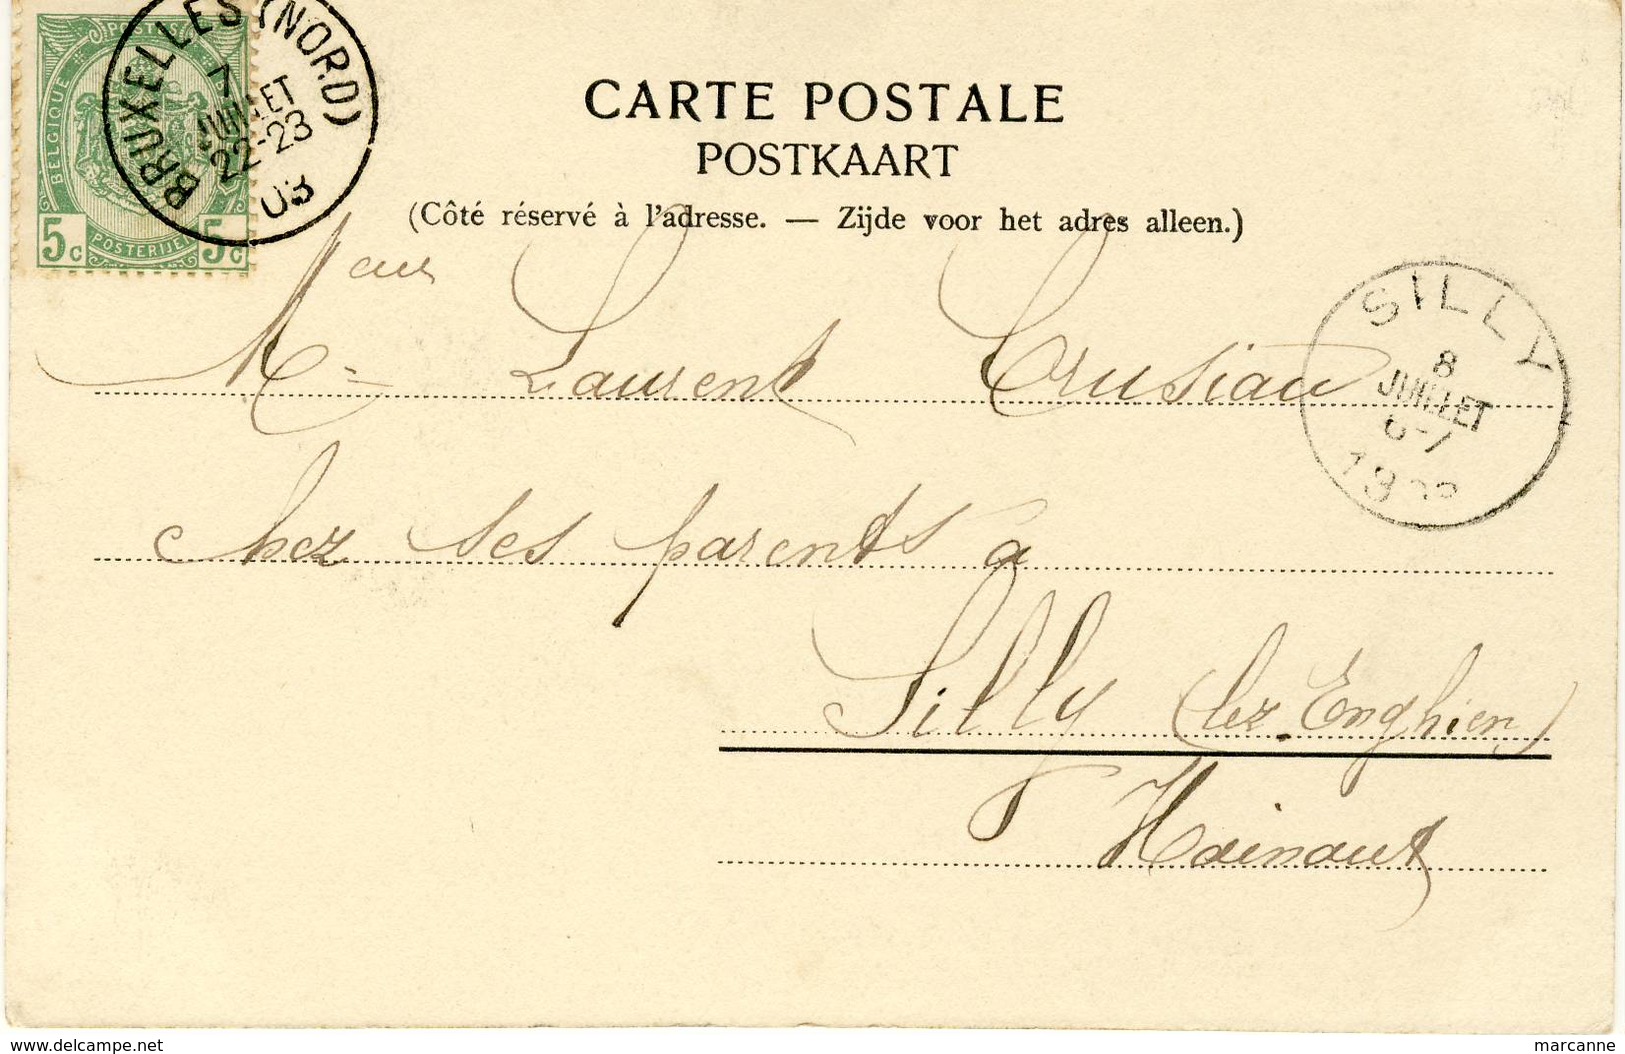 POSTES
BELGIQUE
BRUXELLES (NORD)
7
JUILLET
22-23
03
5c POSTERIJEN 5c
CARTE POSTALE
POSTKAART
(Côté réservé à l'adresse. — Zijde voor het adres alleen.)
Laurent Crusiau
chez ses parents à
Silly (lez-Enghien)
Hainaut
SILLY
8
JUILLET
6-7
delcampe.net
marcanne